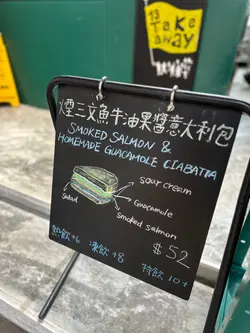 13
Take
away
煙三文魚牛油果醬意大利包
SMOKED SALMON &
HOMEMADE GUACAMOLE CIABATTA
sour cream
Guacamole
Salad
smoked salmon
$52
熱飲+6 凍飲+8 特飲10+